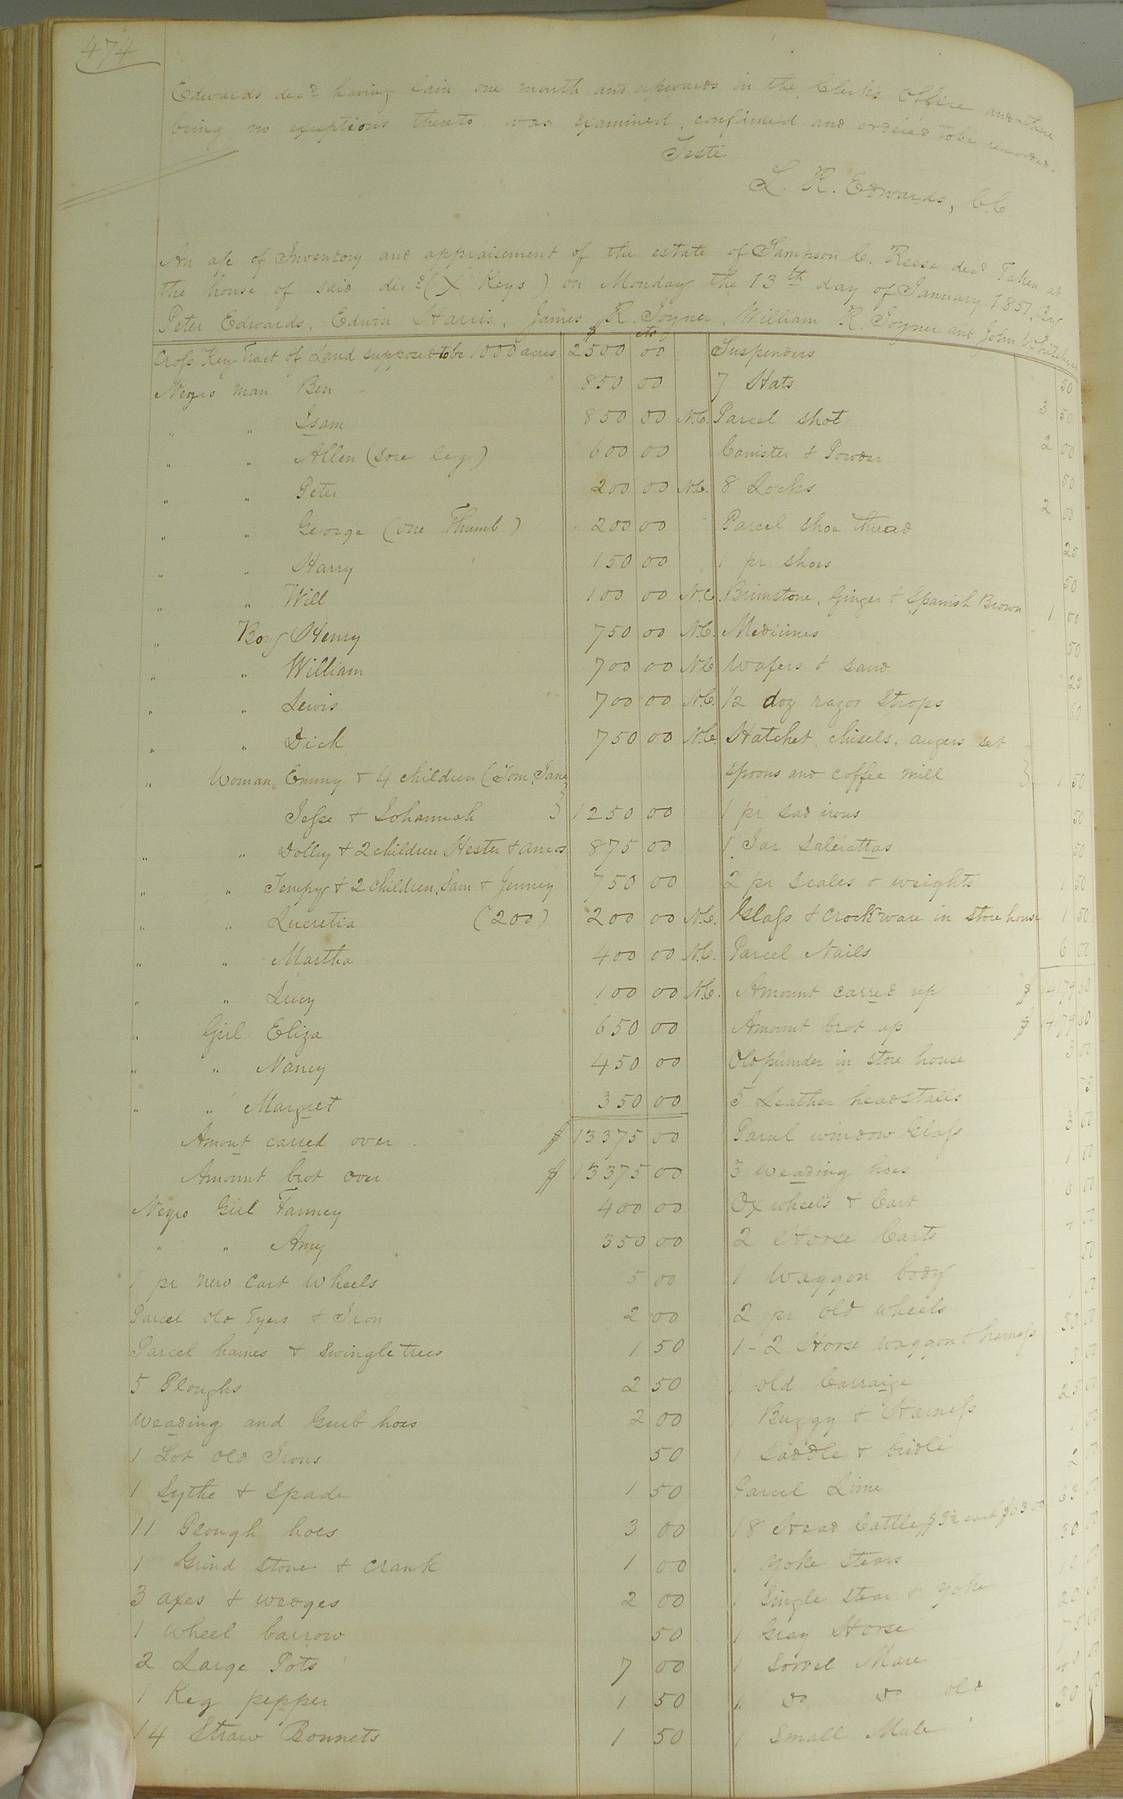 474
Edwards decd having lain one month and upwards in the Clerk's Office and there
being no exceptions thereto was examined, confirmed and ordered to be recorded.
Teste
L. R. Edwards, C.C.
An a/c of Inventory and appraisement of the estate of Sampson C. Reese decd Taken at
the house of said decd (X Keys) on Monday the 13th day of January 1851, By
Peter Edwards, Edwin Harris, James R. Joyner, William R. Joyner and John Whitehead
$ cts
Cross Key Tract of Land supposed to be 1000 acres 2500 00
Negro man Ben 850 00
" " Isam 850 00 N.C.
" " Allen (sore leg) 600 00
" " Peter 200 00 N.C.
" " George (one Thumb) 200 00
" " Harry 150 00
" " Will 100 00 N.C.
" Boy Henry 750 00 N.C.
" " William 700 00 N.C.
" " Lewis 700 00 N.C.
" " Dick 750 00 N.C.
" Woman Emmy & 4 children (Tom, Jane
Jesse & Johannah } 1250 00
" " Dolley & 2 children Hester & Amos 875 00
" " Tempy & 2 children, Sam & Jenney 750 00
" " Lucretia (200) 200 00 N.C.
" " Martha 400 00 N.C.
" " Lucy 100 00 N.C.
" Girl Eliza 650 00
" " Nancy 450 00
" " Margret 350 00
Amount carred over $ 13375 00
Amount brot over $ 13375 00
Negro Girl Fanney 400 00
" " Amy 350 00
1 pr new Cart Wheels 5 00
Parcel old Tyers & Iron 2 00
Parcel hames & Swingle trees 1 50
5 Ploughs 2 50
Weading and Grub hoes 2 00
1 Lot old Irons 50
1 Sythe & Spade 1 50
11 Plough hoes 3 00
1 Grind stone & crank 1 00
3 axes & wedges 2 00
1 wheel barrow 50
2 Large Pots 7 00
1 Keg pepper 1 50
14 Straw Bonnets 1 50
Suspenders 50
7 Hats 3 50
Parcel shot 2 00
Canister & Powder 50
8 Locks 2 00
Parcel shoe thread 25
1 pr shoes 50
Brimstone, Ginger & Spanish Brown 1 00
Medicines 50
Wafers & sand 25
1/2 doz razor Strops 50
Hatchet, chisels, augers set
spoons and coffee mill } 1 50
1 pr sad irons 50
1 Jar Salerattas 50
2 pr scales & weights 1 50
Glass & crockware in store house 1 50
Parcel Nails 6 00
Amount carred up $
Amount brot up $
Old plunder in store house 3 00
5 Leather headstalls
Parcel window Glass 3 00
3 weading hoes 1 00
Ox wheels & Cart 6 00
2 Horse Carts
1 Waggon body
2 pr old wheels
1 - 2 Horse waggon & harness 30 00
1 old Carraige
1 Buggy & Harness 25 00
1 Saddle & bridle
Parcel Lime 2
18 Head Cattle $3½ each $63.00 63 00
1 yoke Steers 30 00
1 Single stear & yoke
1 Gray Horse
1 Sorrel Mare 75
1 do do old
1 Small Mule 30